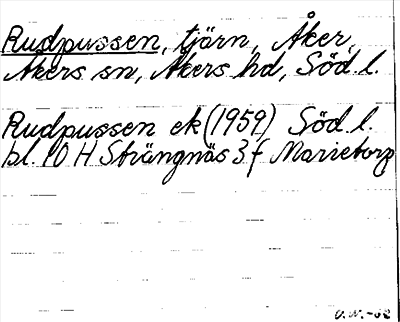 Rudpussen, tjärn, Åker,
Åkers sn, Åkers hd, Söd. l.
Rudpussen ek (1959) Söd. l.
bl. 10 H Strängnäs 3 f Marietorp
U.N.-62